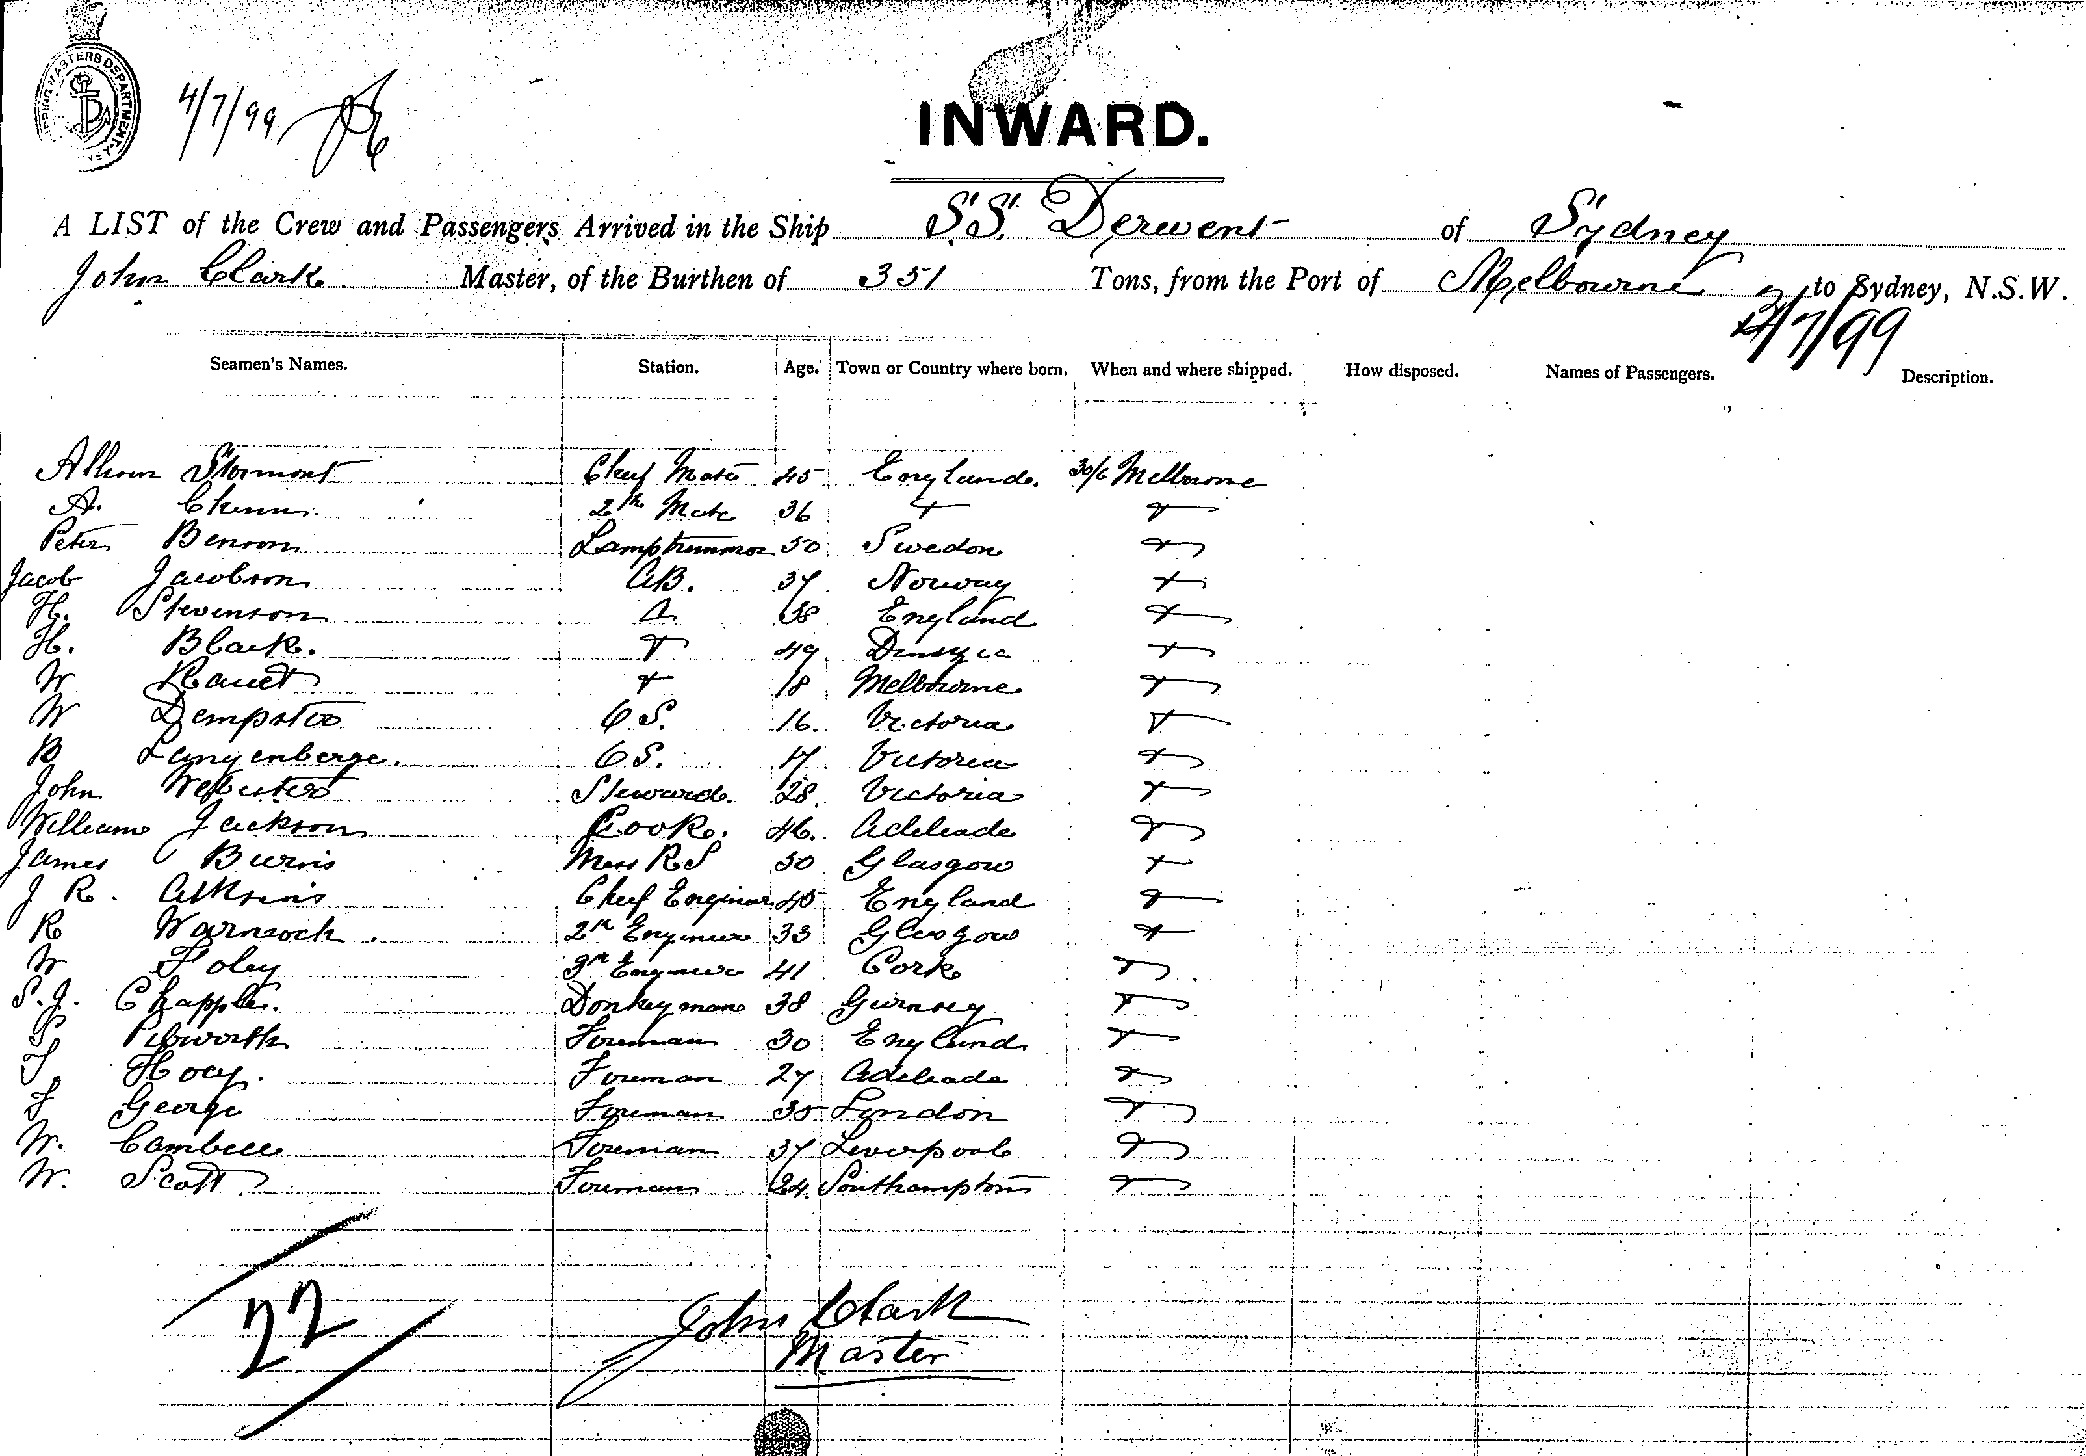 4/7/99
INWARD.
A LIST of the Crew and Passengers Arrived in the Ship S.S. Derwent of Sydney
John Clark Master, of the Burthen of 351 Tons, from the Port of Melbourne to Sydney, N.S.W.
4/7/99
Seamen's Names. Station. Age. Town or Country where born. When and where shipped. How disposed. Names of Passengers. Description.
Stormont Chief Mate 45 England. 30/6 Melbourne
A. 2nd Mate 36
Peter Benson Lamptrimmer 50 Sweden
Jacob Jacobson AB. 37 Norway
H. Stevenson 38 England
H. Black. 49
W 18 Melbourne
W Dempster OS. 16. Victoria
B Langenberge. OS. 17 Victoria
John Webster Steward. 28. Victoria
William Jackson Cook. 46. Adelaide
James Burns Mess R S 50 Glasgow
J R. Atkins Chief Engineer 45 England
R Warnock 2nd Engineer 33 Glasgow
W Foley 3rd Engineer 41 Cork
S. J. Chapple. Donkeyman 38 Gurnsey
Pibworth Fireman 30 England
Hoey. Fireman 27 Adelaide
George Fireman 35 London
W. Cambell Fireman 37 Liverpool
W. Scott Fireman 24 Southampton
22
John Clark
Master